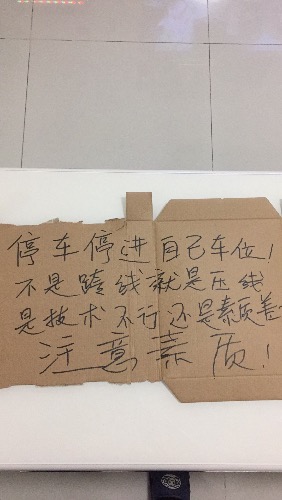 停车停进自己车位！
不是跨线就是压线
是技术不行还是素质差
注意素质！